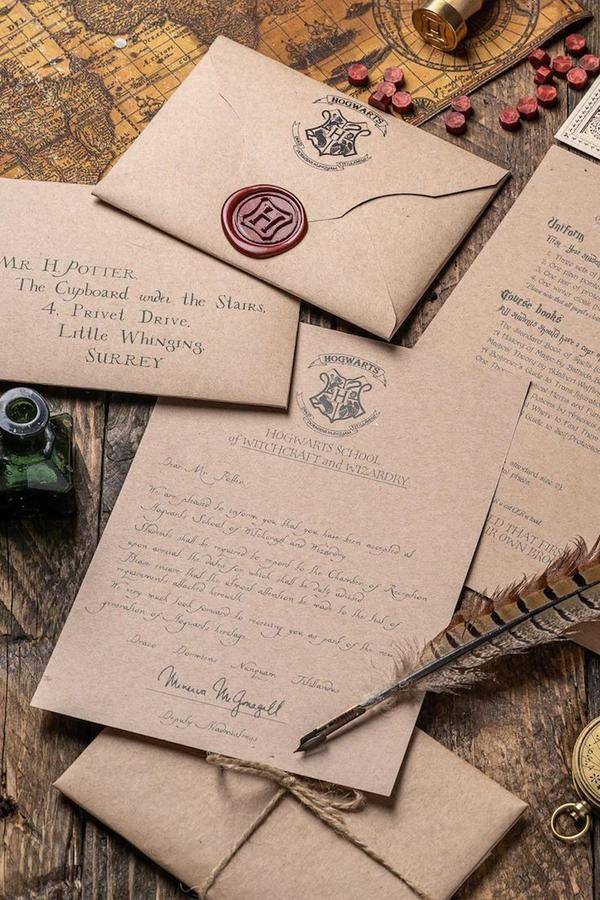 HOGWARTS
H
MR H POTTER,
The Cupboard under the Stairs,
4, Privet Drive,
Little Whinging,
SURREY
HOGWARTS
HOGWARTS SCHOOL
of WITCHCRAFT and WIZARDRY
Dear Mr. Potter,
We are pleased to inform you that you have been accepted at
Hogwarts School of Witchcraft and Wizardry
Students shall be required to report to the Chamber of Reception
upon arrival, the dates for which shall be duly advised
Please ensure that the utmost attention be made to the list of
requirements attached herewith
We very much look forward to receiving you as part of the new
generation of Hogwarts heritage.
Draco Dormiens Nunquam Titillandus
Minerva McGonagall
Deputy Headmistress
Uniform
First-Year
1. Three sets of
2. One plain
3. One pair of
4. One winter
Course books
All students should have a
The Standard Book of Spells
A History of Magic by Bathilda
Magical Theory by Adalbert
A Beginner's Guide to
One Thousand
Herbs and
THAT FIRST
OWN